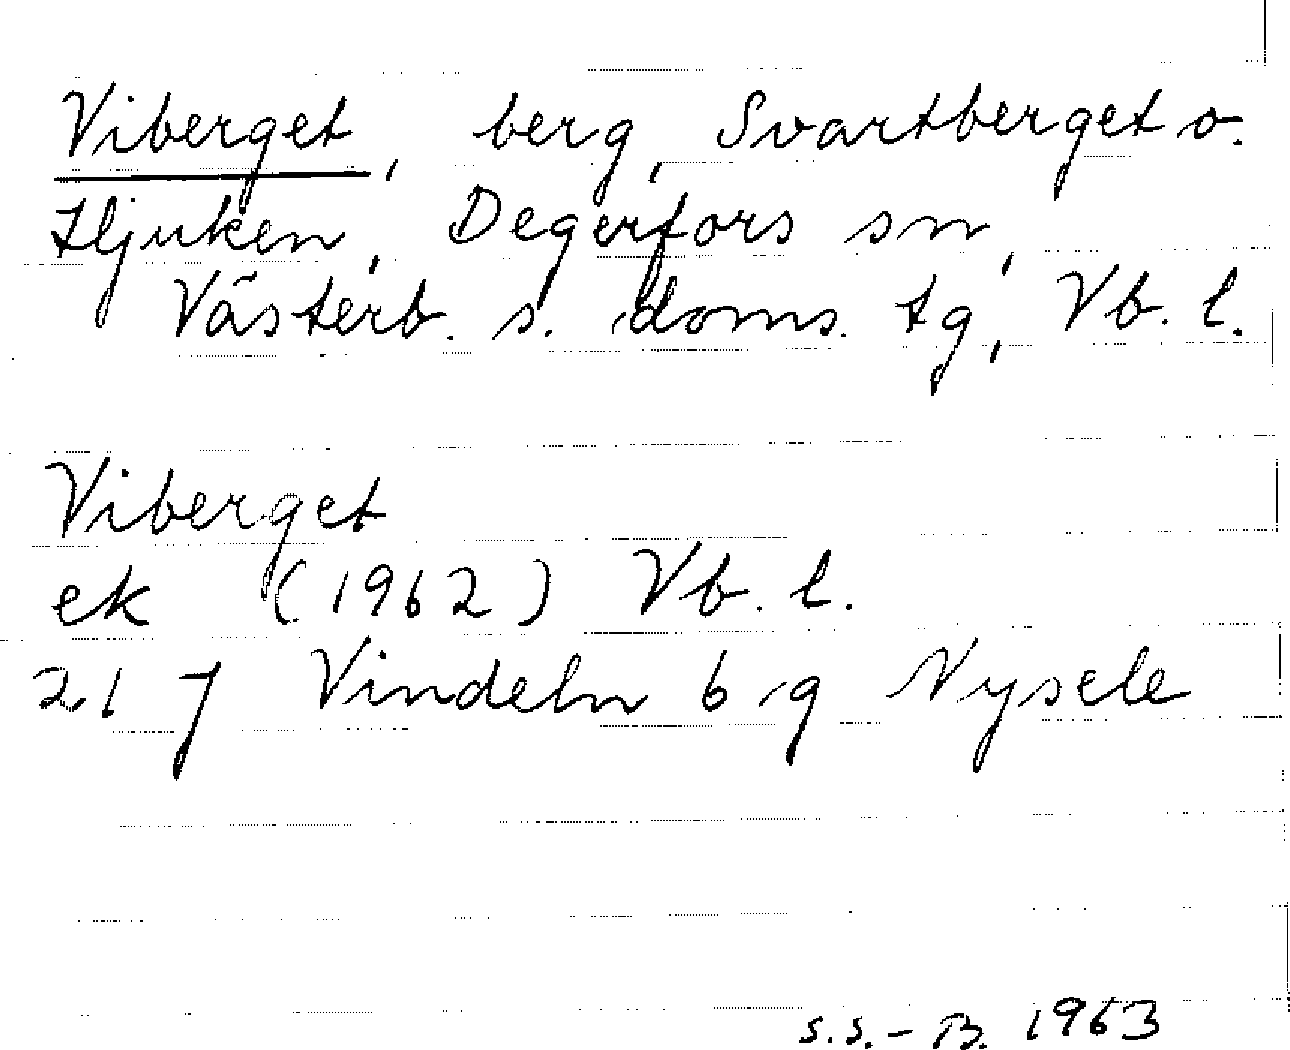 Viberget, berg, Svartberget o.
Hjuken, Degerfors sn,
Västerb. s. doms. tg, Vb. l.
Viberget
ek (1962) Vb. l.
21 J Vindeln 6 g Nysele
S.S.-B. 1963